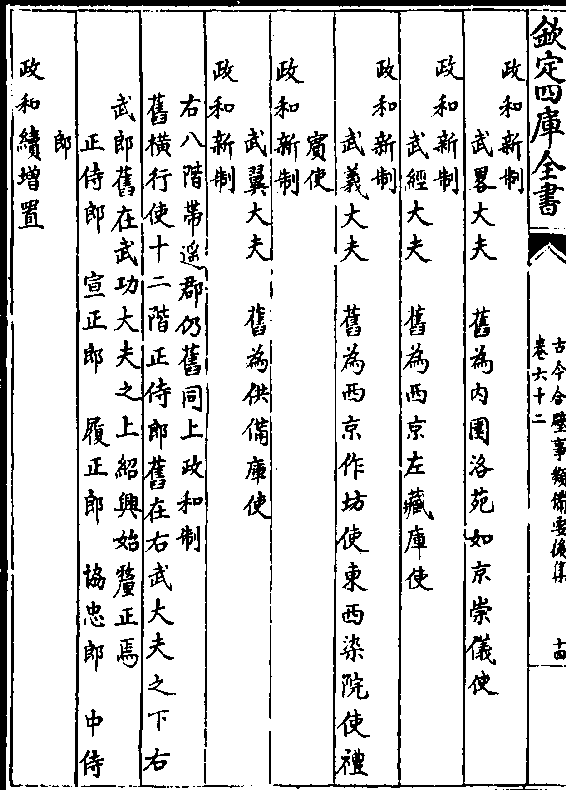 欽定四庫全書
古今合璧事類備要後集
卷六十二
十四
政和新制
武畧大夫　舊為内園洛苑如京崇儀使
政和新制
武經大夫　舊為西京左藏庫使
政和新制
武義大夫　舊為西京作坊使東西染院使禮
賓使
政和新制
武翼大夫　舊為供備庫使
政和新制
右八階帶遥郡仍舊同上政和制
舊橫行使十二階正侍郎舊在右武大夫之下右
武郎舊在武功大夫之上紹興始釐正焉
正侍郎　宣正郎　履正郎　協忠郎　中侍
郎
政和續增置